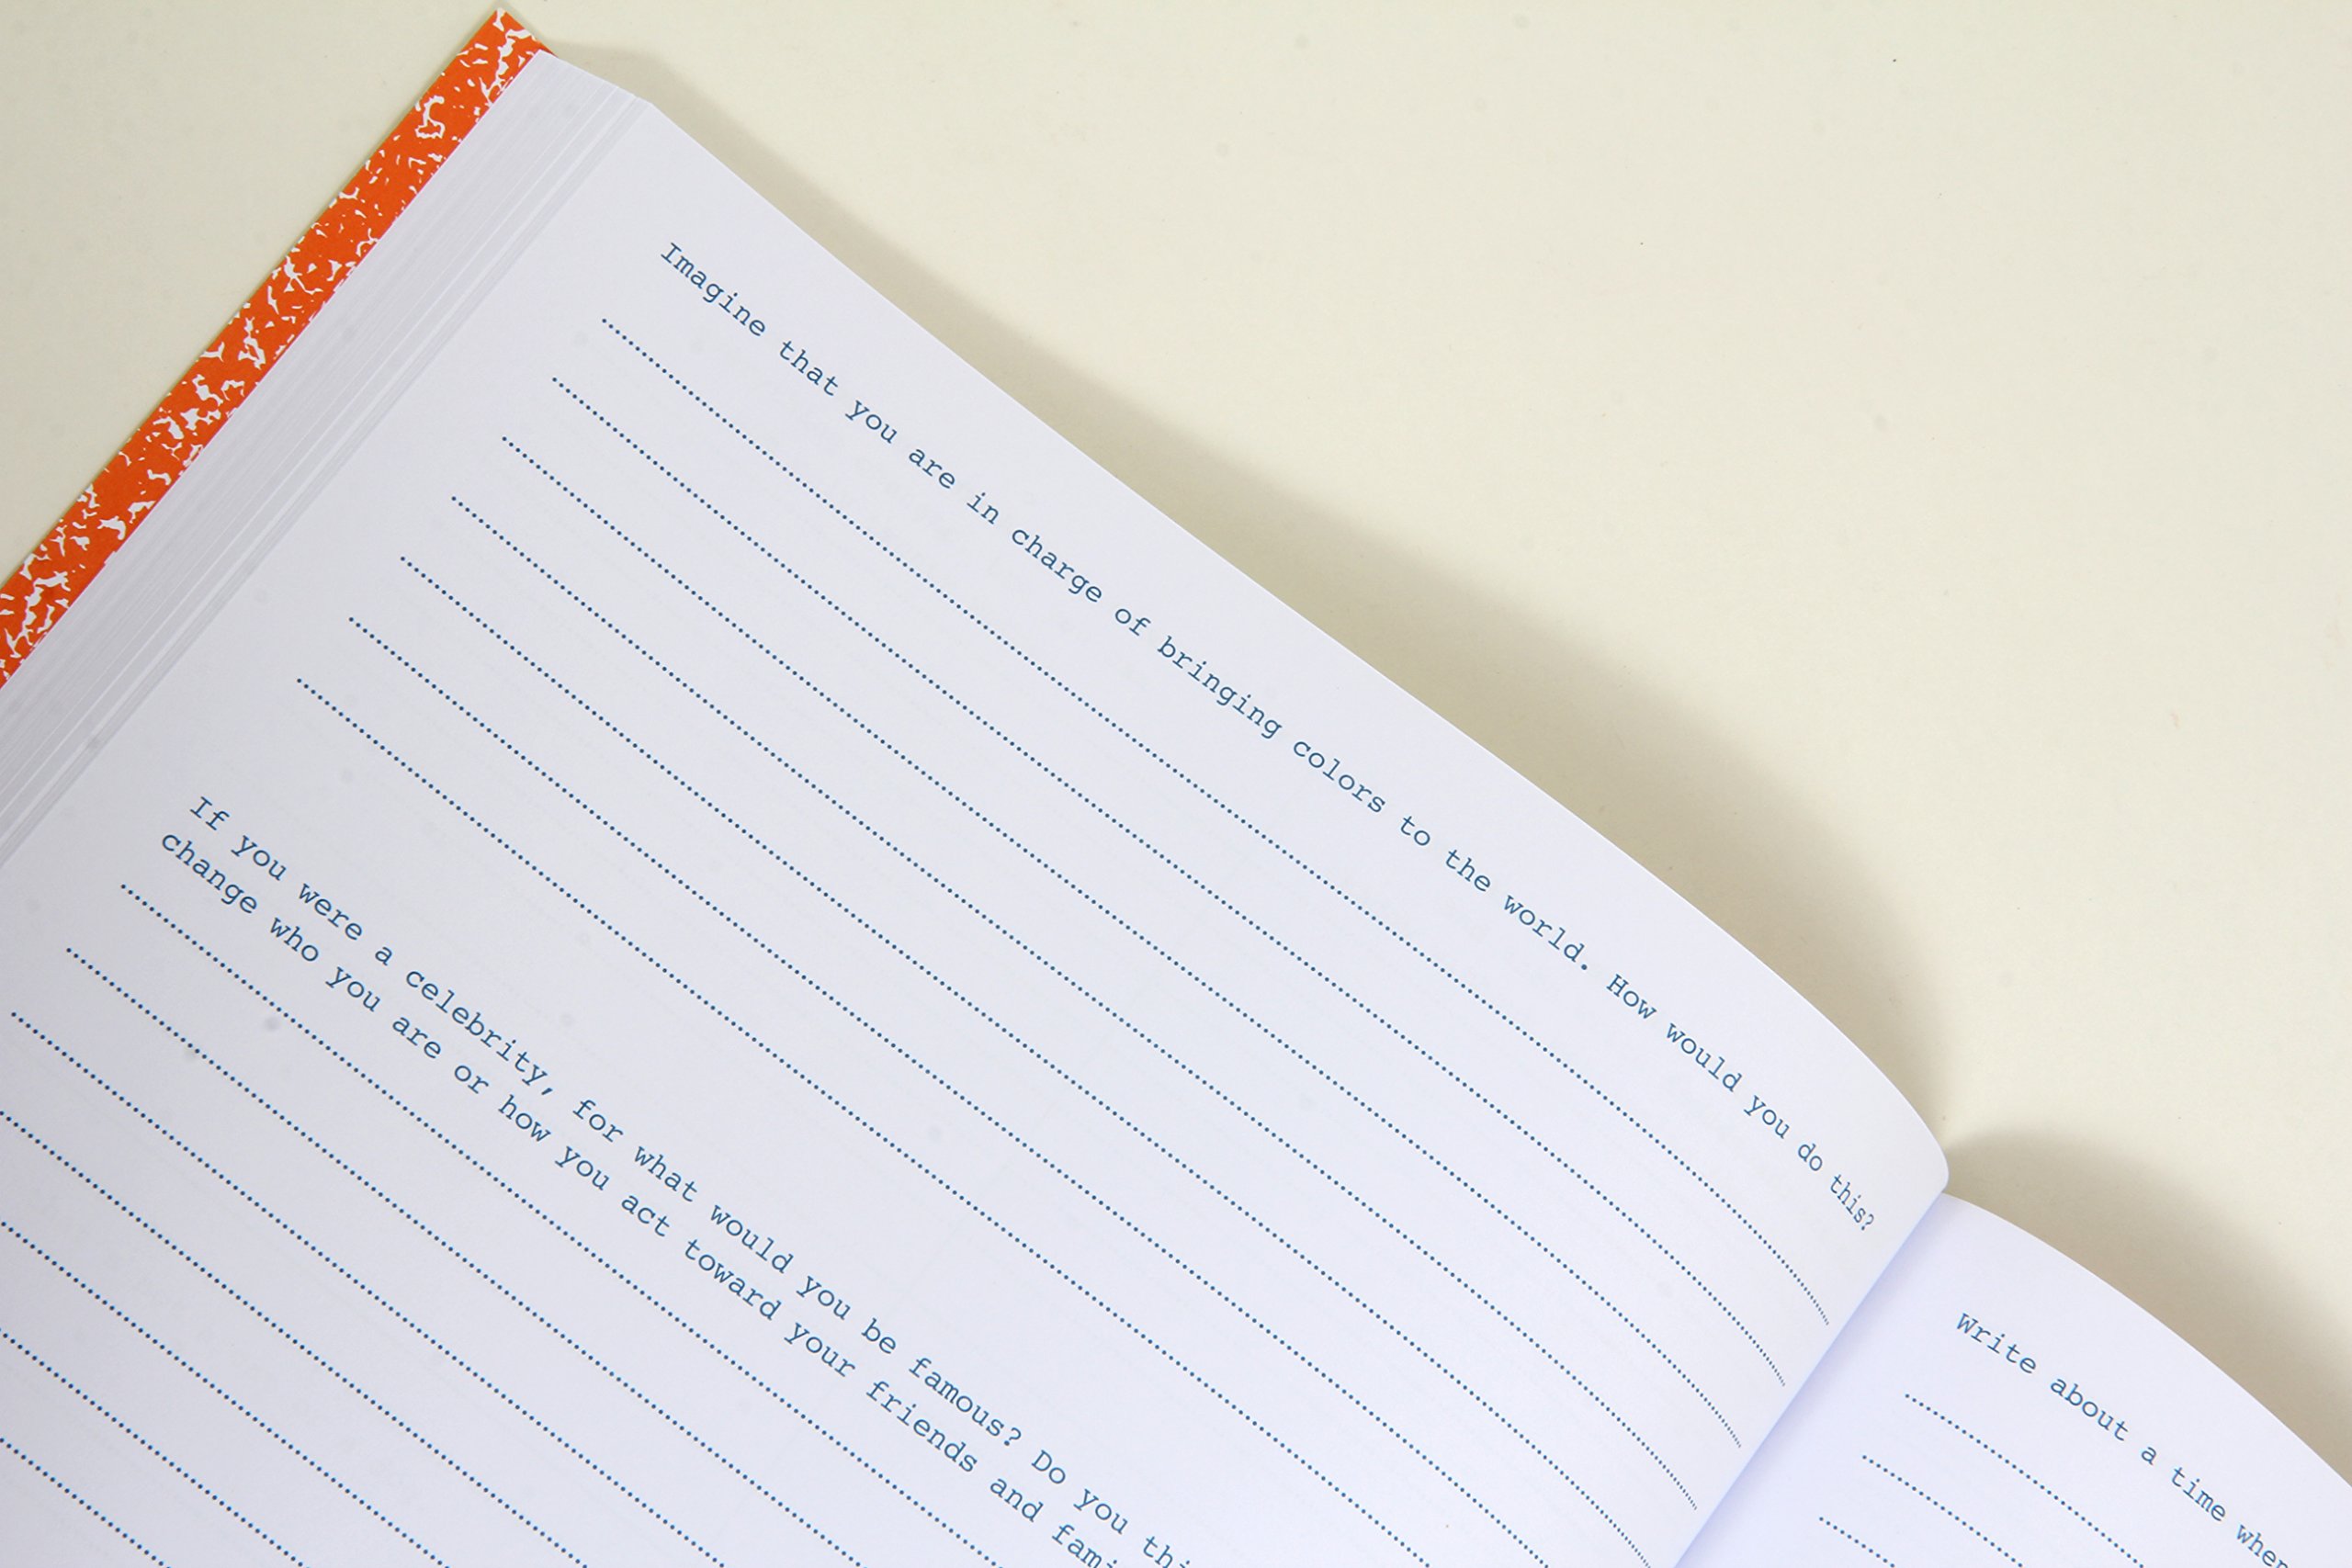 Imagine that you are in charge of bringing colors to the world. How would you do this?
If you were a celebrity, for what would you be famous? Do you
change who you are or how you act toward your friends and
Write about a time when